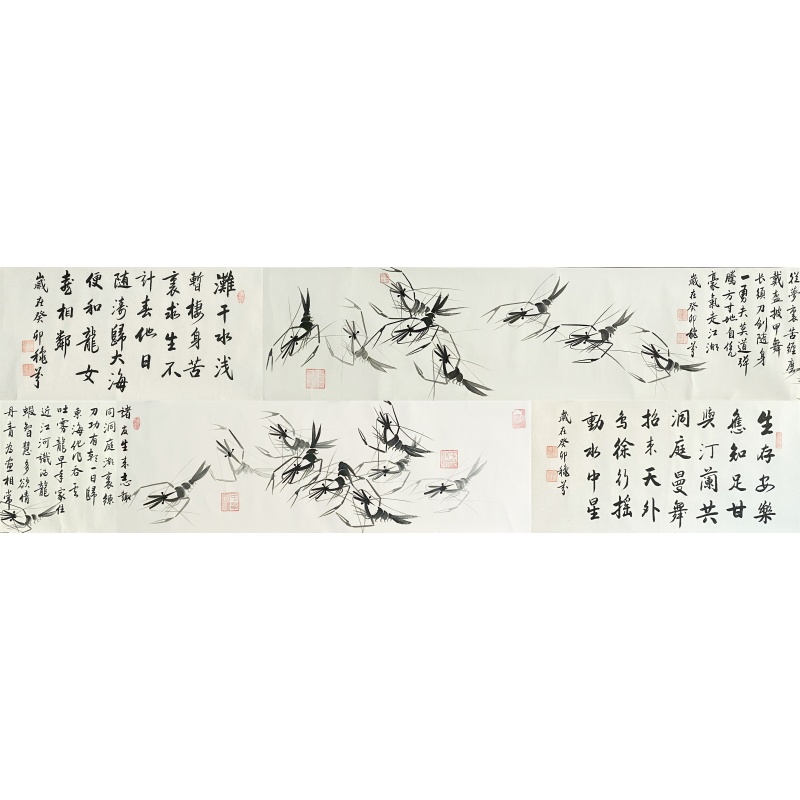 夢裏苦經磨
戴盔披甲舞
长须刀劍隨身
一勇夫莫道彈
騰方寸地自憑
豪氣走江湖
歲在癸卯穗芬
灘干水浅
暫棲身苦
裏求生不
計春他日
随濤歸大海
便和龍女
相鄰
歲在癸卯穗芬
生存安樂
應知足甘
與汀蘭共
洞庭曼舞
招来天外
鸟徐行摇
動水中星
歲在癸卯穗芬
諸友生来志趣
同洞庭湖裏練
刀功有朝一日歸
東海化作吞雲
吐雾龍早年家住
近江河識得龍
蝦智慧多欲情
丹青為畫相常